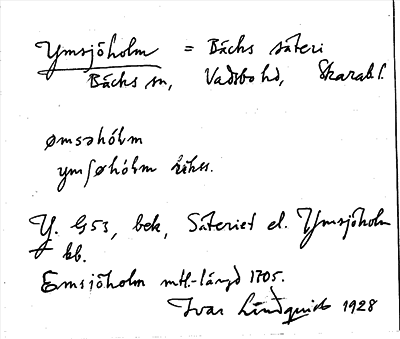 Ymsjöholm = Bäcks säteri
Bäcks sn, Vadsbo hd, Skarab. l.
ømsəhólm
ymʃøhólm
Y. G53, bek, Säteriet el. Ymsjöholm
kb.
Emsjöholm mtl-längd 1705.
Ivar Lindquist 1928